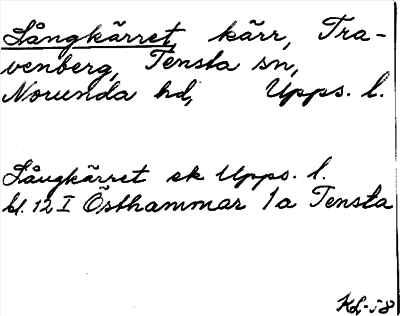 Långkärret, kärr, Tra-
venberg, Tensta sn,
Norunda hd, Upps. l.
Långkärret ek Upps. l.
bl. 12 I Östhammar 1a Tensta
KL-58